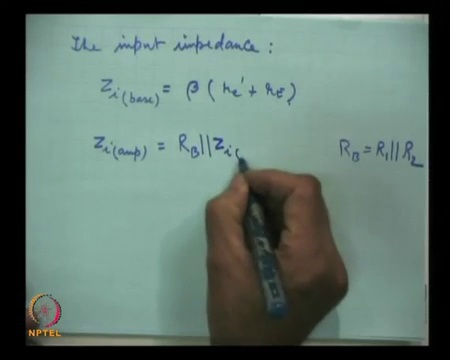 The input impedance :
Z i(base) = β ( re' + rE )
Z i(amp) = RB || Z i( RB = R1 || R2
NPTEL